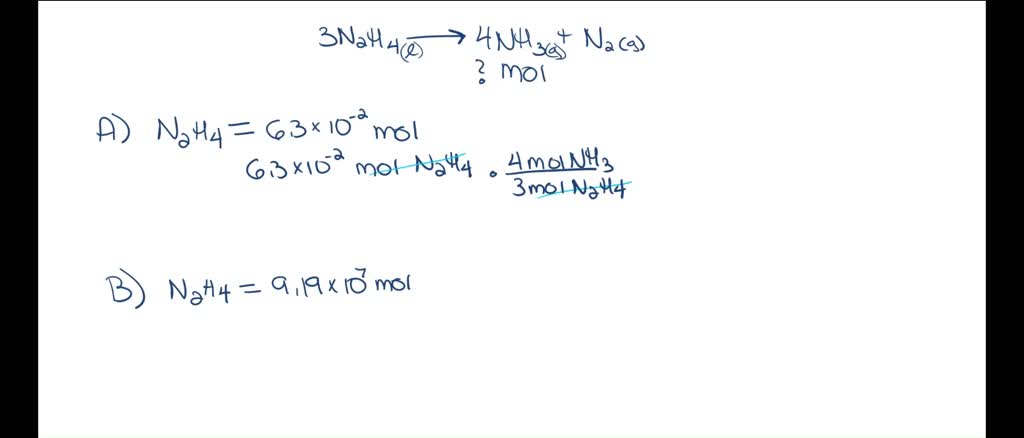 3N₂H₄(l) ⟶ 4NH₃(g) + N₂(g)
? mol
A) N₂H₄ = 6.3 × 10⁻² mol
6.3 × 10⁻² mol N₂H₄ · 4 mol NH₃ / 3 mol N₂H₄
B) N₂H₄ = 9.19 × 10⁷ mol